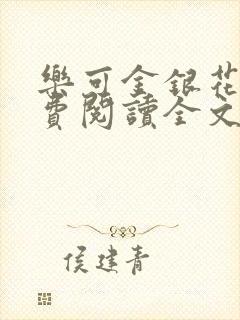 樂可金銀花
費閱讀全文
侯建青